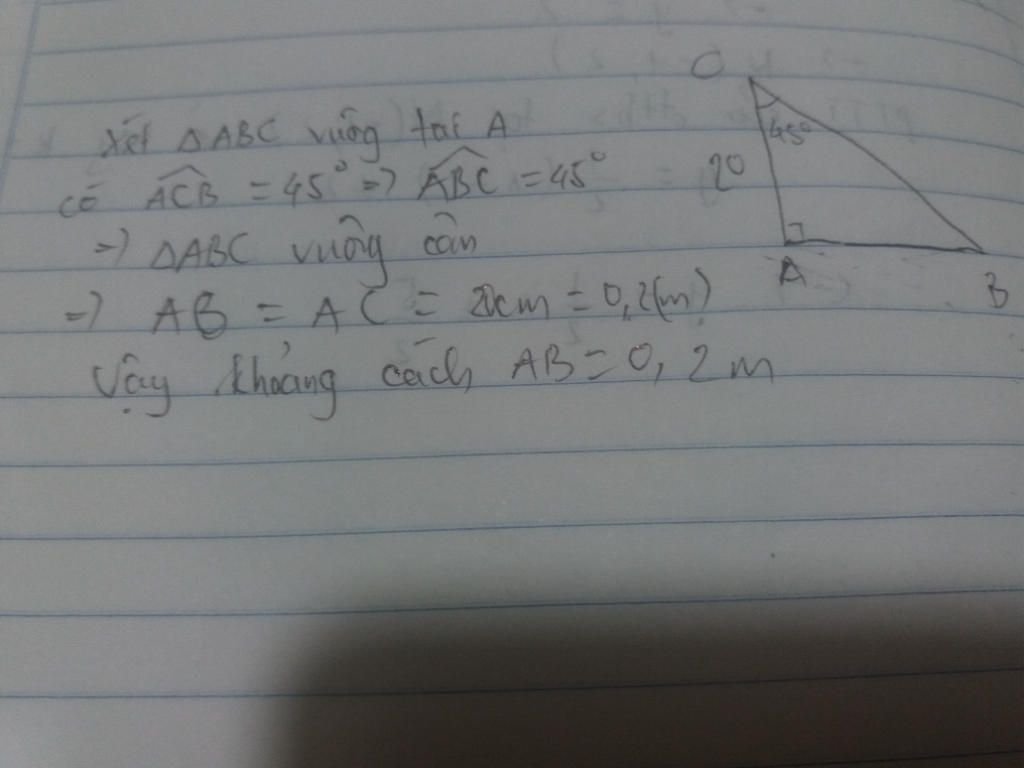 Xét ΔABC vuông tại A
có ACB = 45° => ABC = 45°
=> ΔABC vuông cân
=> AB = AC = 20cm = 0,2(m)
Vậy khoảng cách AB = 0,2m
C
45°
20
A
B